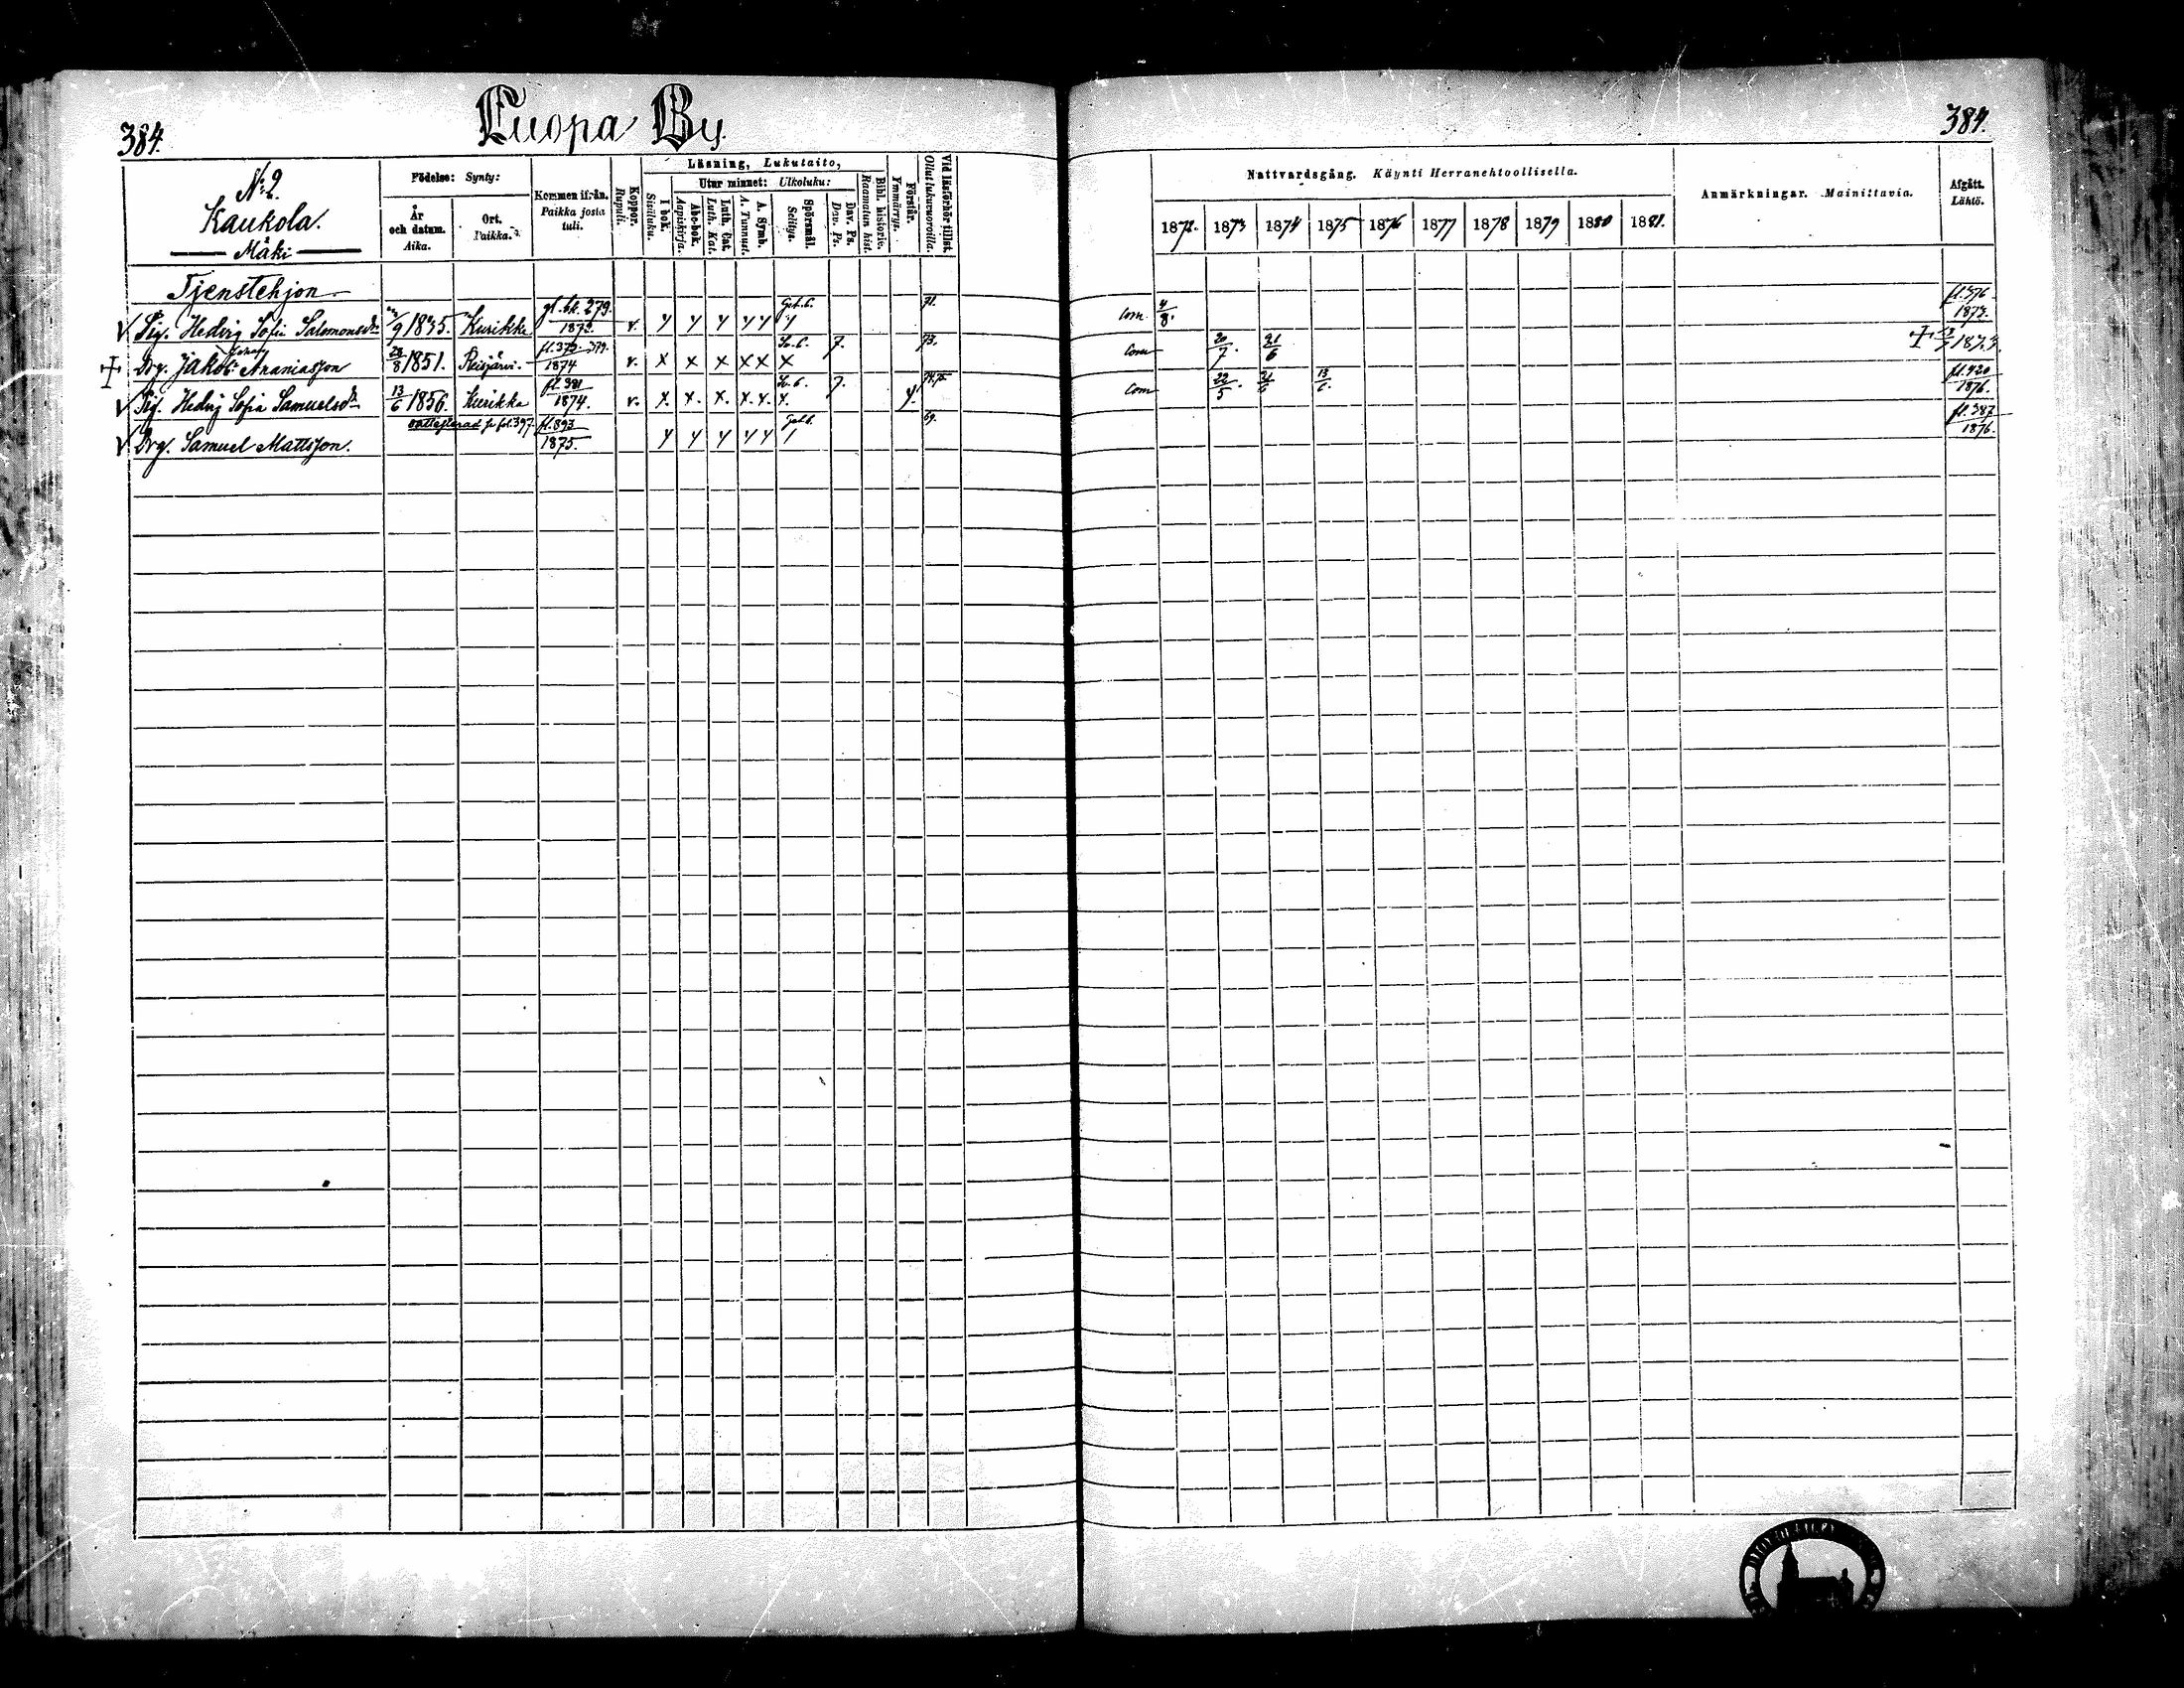 384.
Luopa By.
384.
No 2
Kaukola.
Mäki
Födelse: Synty:
År och datum. Aika.
Ort. Paikka.
Kommen ifrån. Paikka josta tuli.
Koppor. Rupuli.
Läsning, Lukutaito,
I bok. Sisäluku.
Utur minnet: Ulkoluku:
Abc-bok. Aapiskirja.
Luth. Cat. Luth. Kat.
A. Symb. A. Tunnust.
Spörsmål. Selitys.
Dav. Ps. Dav. Ps.
Bibl. historie. Raamatun hist.
Förstår. Ymmärrys.
Vid läsförhör tillst. Ollut lukuvuoroilla.
Nattvardsgång. Käynti Herranehtoollisella.
1872. 1873 1874 1875 1876 1877 1878 1879 1880 1881.
Anmärkningar. Mainittavia.
Afgått. Lähtö.
Tjenstehjon
√ Pig. Hedvig Sofia Salomonsdr /9 1835. Kurikka gl. bk. 279. 1872. v. y y y y y Get. C. 71. Com 4/8. fl. 376 1873.
+ Drg. Jakob Johan Ananiasson 28/8 1851. Reisjärvi. fl. 373. 379. 1874 v. x x x x x x 7. 73. Com 20/7. 21/6 +
√ Pig. Hedvig Sofia Samuelsdr 13/6 1856. Kurikka fl. 381 1874. v. x. x. x. x. x. x. 7. y. 74.75. Com 22/5. 21/6 13/6. fl. 420 1876.
√ Drg. Samuel Mattsson. fr fol. 397. fl. 393 1875. y y y y y 69. fl. 387 1876.